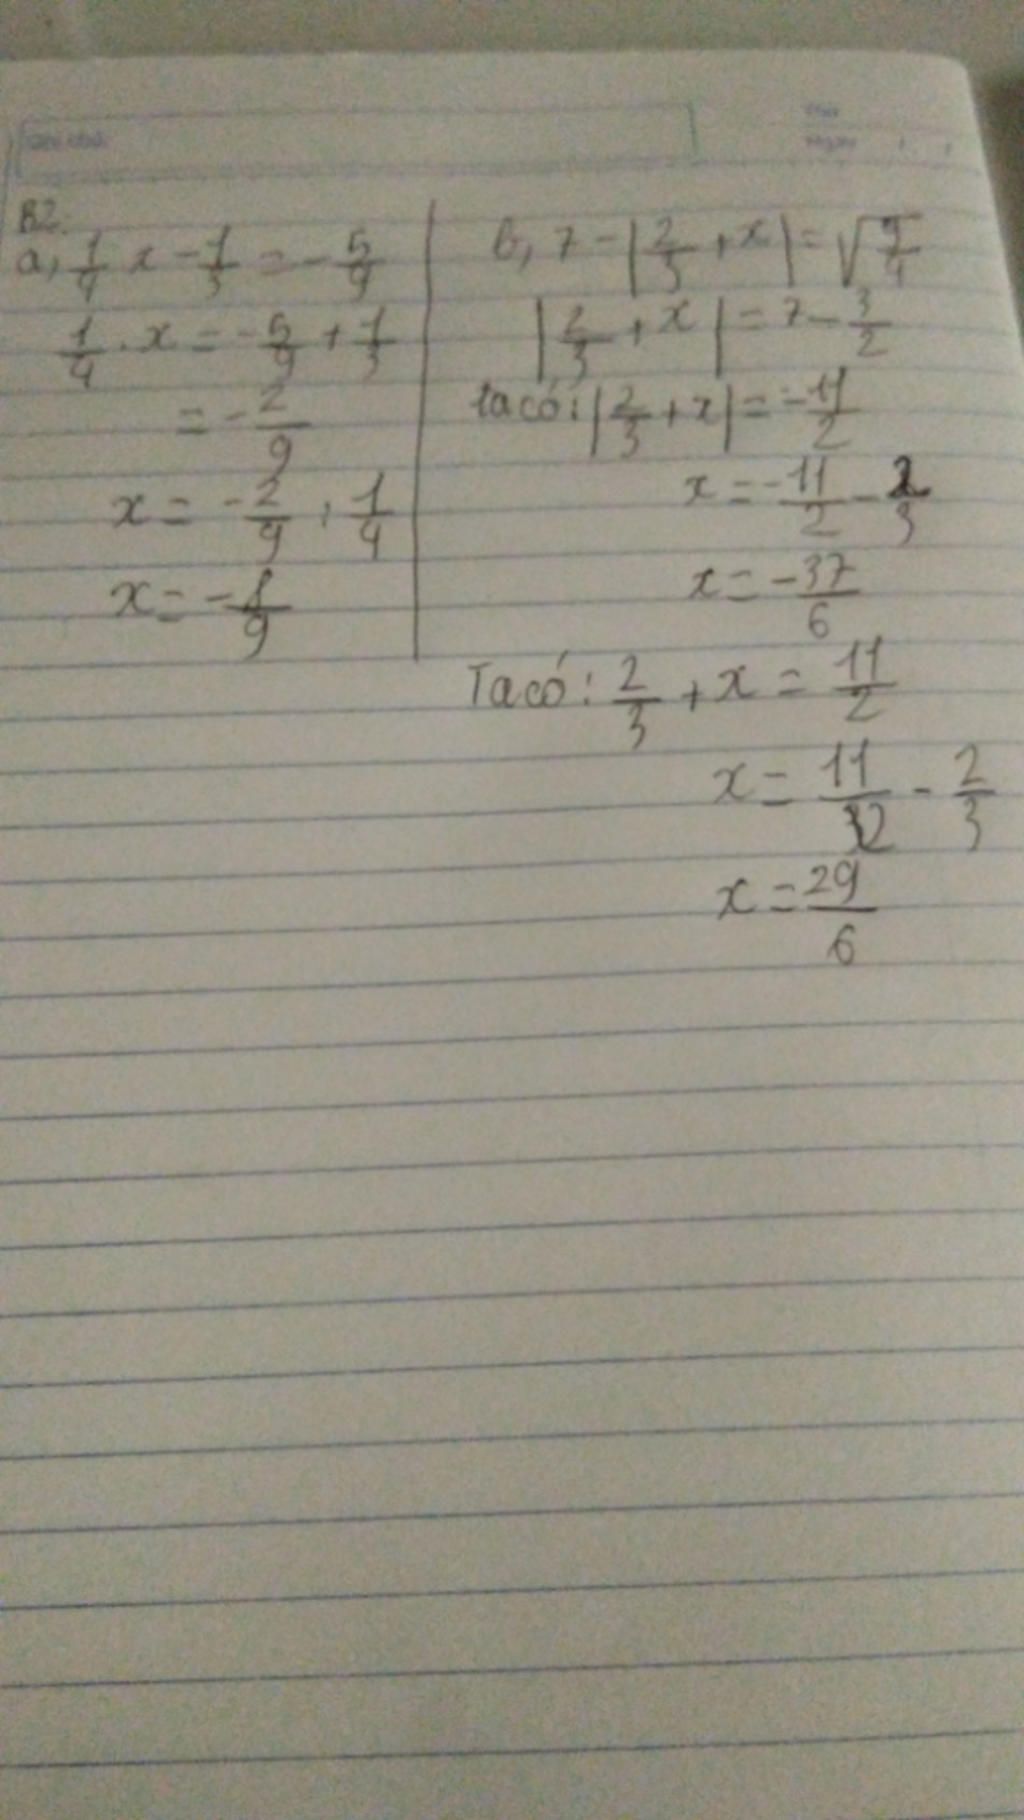 B2.
a, 1/4 x - 1/3 = - 5/9
1/4 . x = - 5/9 + 1/3
= - 2/9
x = - 2/9 : 1/4
x = - 8/9
b, 7 - | 2/3 + x | = √9/4
| 2/3 + x | = 7 - 3/2
ta có: | 2/3 + x | = - 11/2
x = - 11/2 - 2/3
x = - 37/6
Ta có: 2/3 + x = 11/2
x = 11/2 - 2/3
x = 29/6